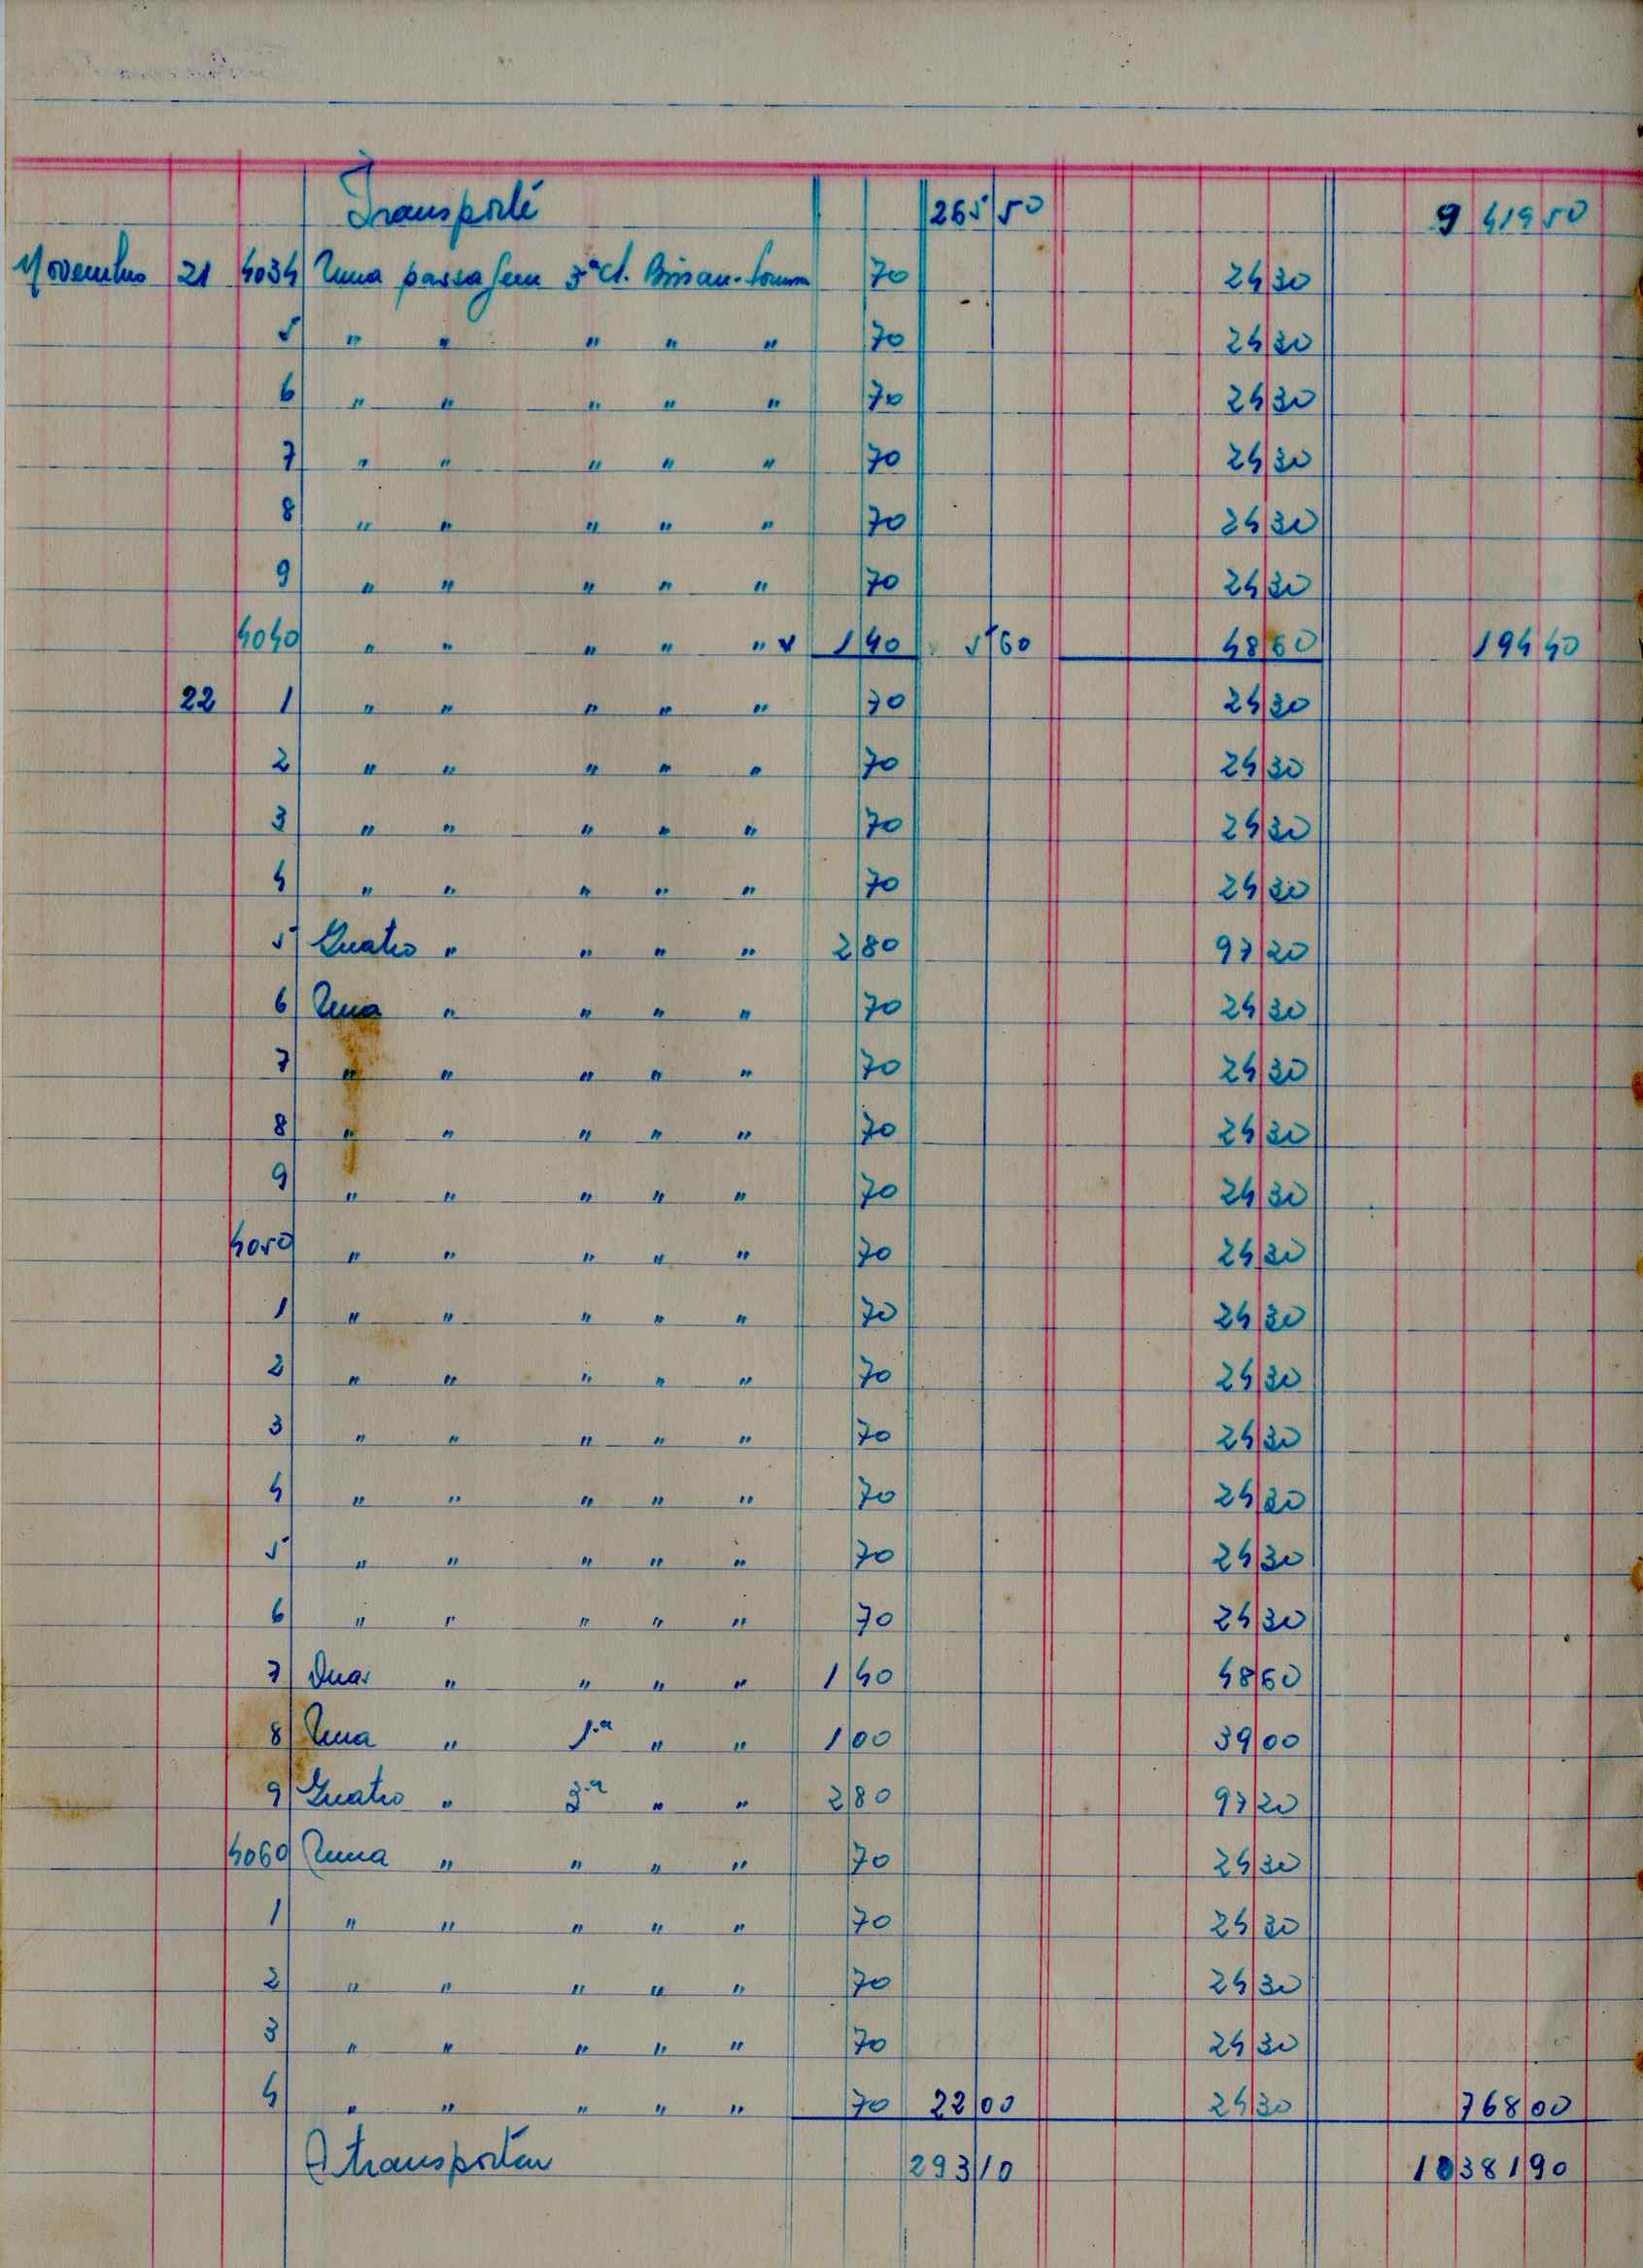 Transporte 265 50 9 419 50
Novembro 21 4034 Uma passagem 3ª cl. Bissau- 70 24 30
5 " " " " " 70 24 30
6 " " " " " 70 24 30
7 " " " " " 70 24 30
8 " " " " " 70 24 30
9 " " " " " 70 24 30
4040 " " " " " v 1 40 5 60 48 60 194 40
22 1 " " " " " 70 24 30
2 " " " " " 70 24 30
3 " " " " " 70 24 30
4 " " " " " 70 24 30
5 Quatro " " " " 2 80 97 20
6 Uma " " " " 70 24 30
7 " " " " " 70 24 30
8 " " " " " 70 24 30
9 " " " " " 70 24 30
4050 " " " " " 70 24 30
1 " " " " " 70 24 30
2 " " " " " 70 24 30
3 " " " " " 70 24 30
4 " " " " " 70 24 30
5 " " " " " 70 24 30
6 " " " " " 70 24 30
7 Duas " " " " 1 40 48 60
8 Uma " 1ª " " 1 00 39 00
9 Quatro " 3ª " " 2 80 97 20
4060 Uma " " " " 70 24 30
1 " " " " " 70 24 30
2 " " " " " 70 24 30
3 " " " " " 70 24 30
4 " " " " " 70 22 00 24 30 768 00
A transportar 293 10 10 381 90